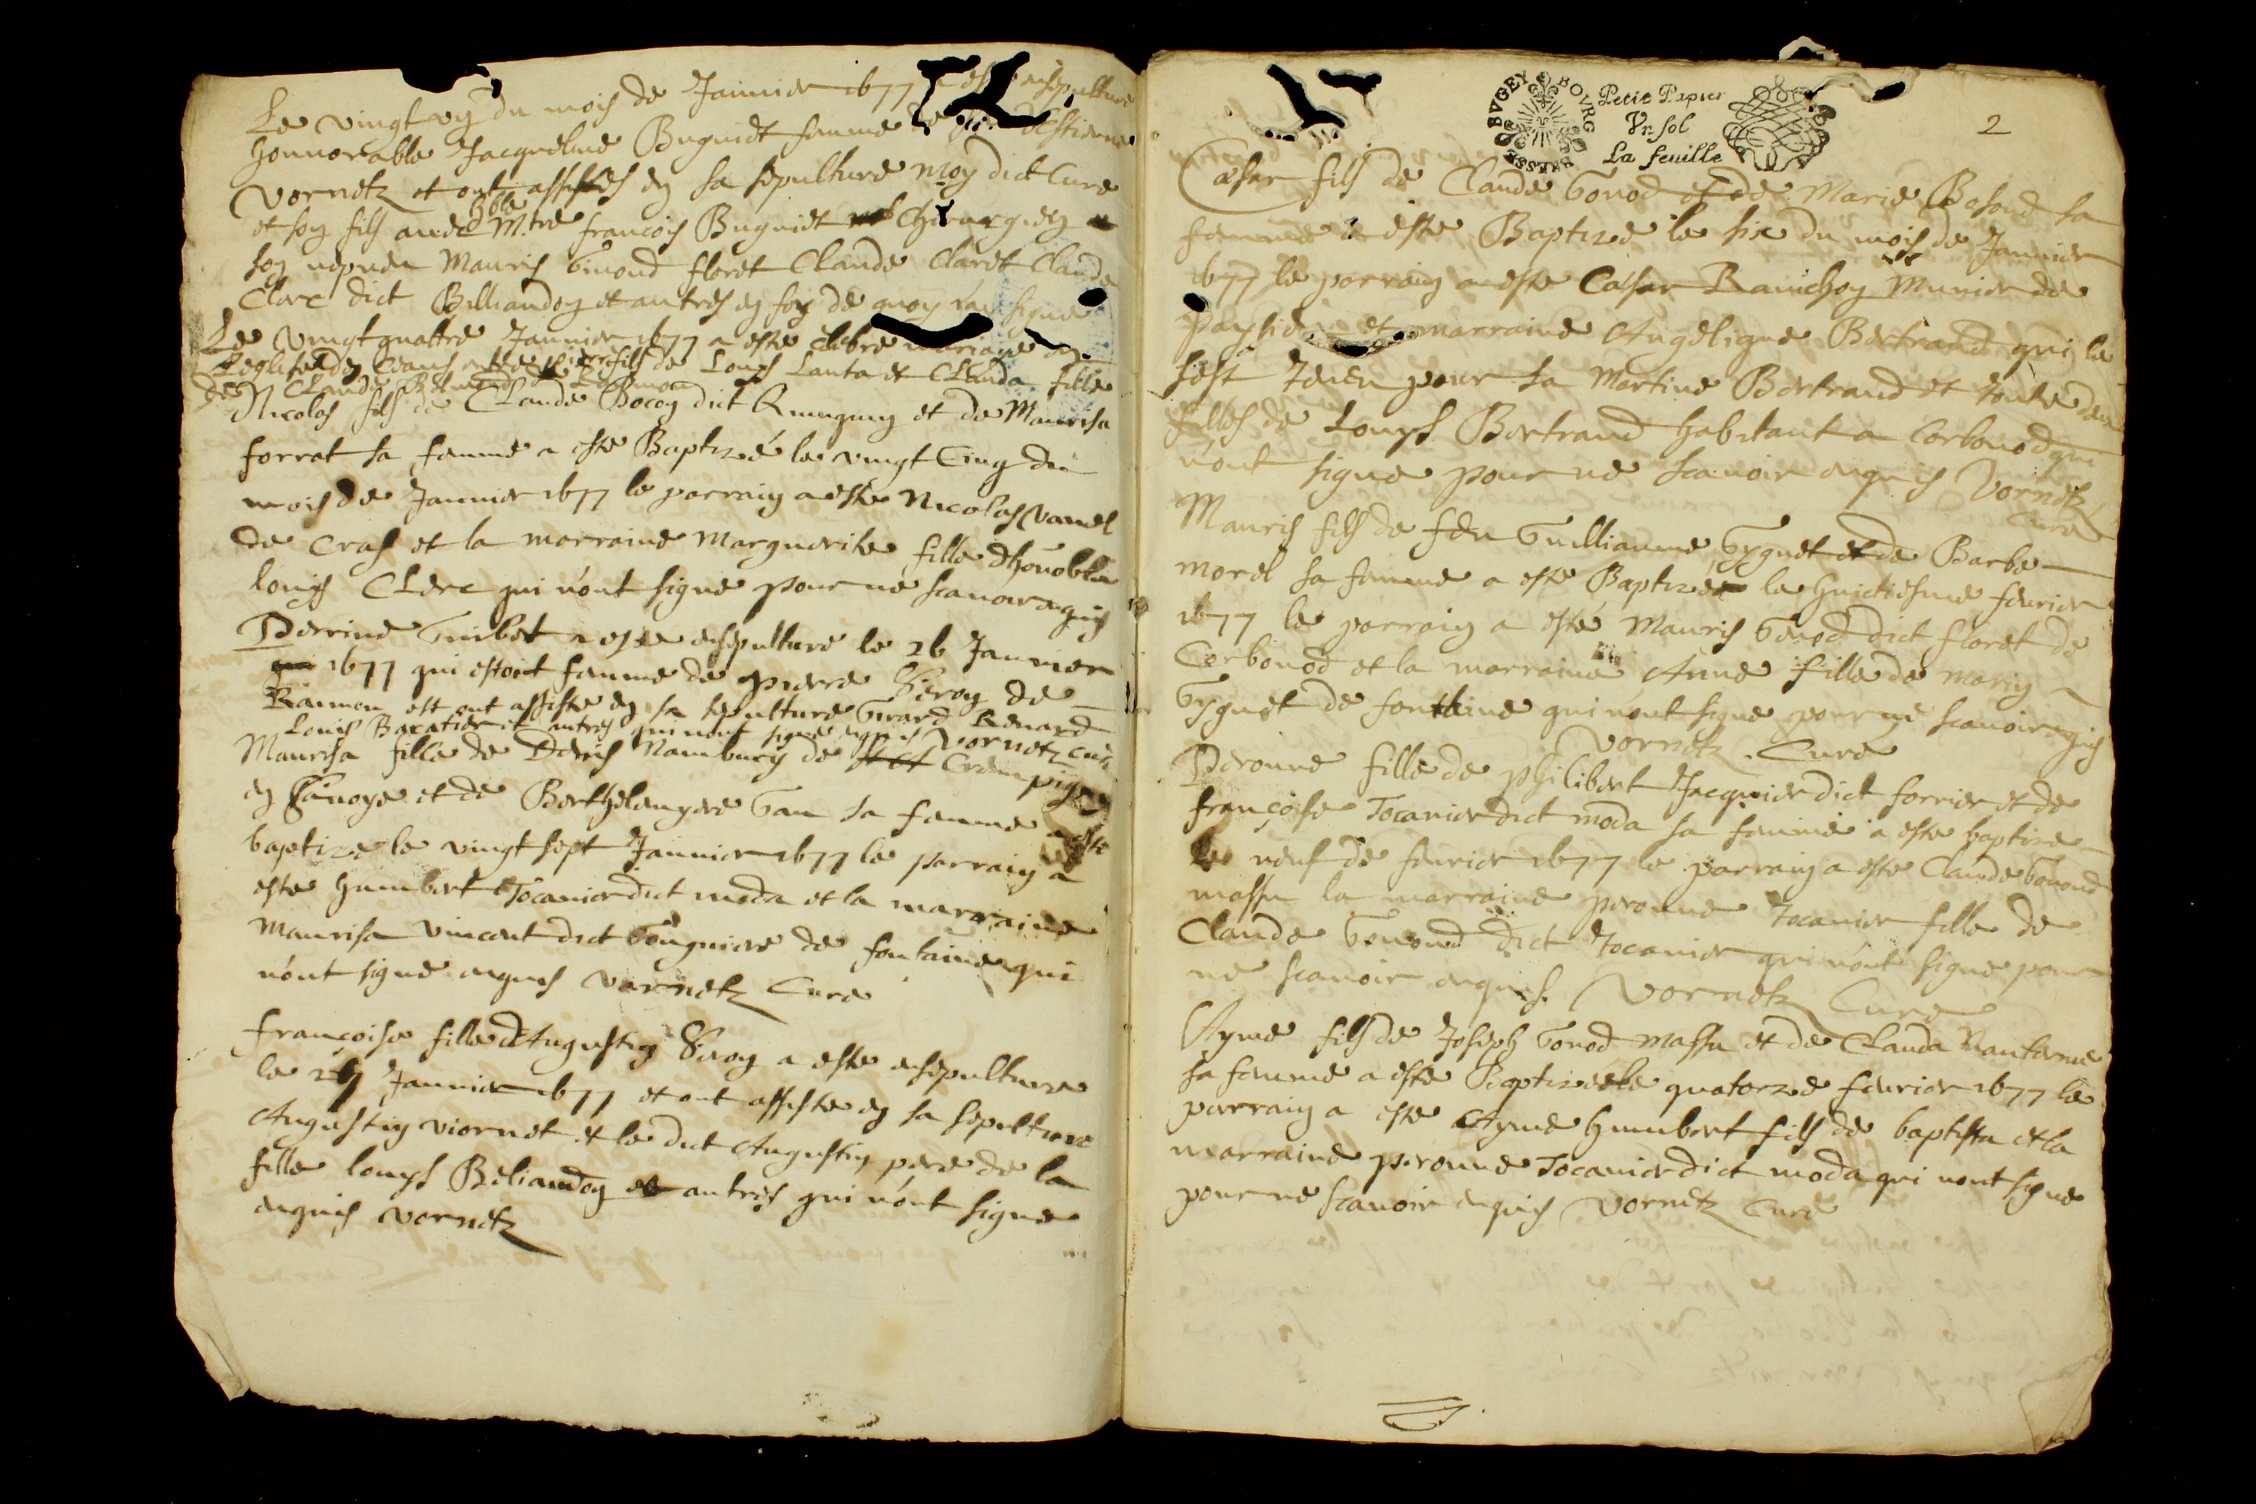 Le vingt vij du mois de Januier 1677 a este ensepulture
honnorable Jacqueline Buguiet femme de
Vornetz et ont assistes en sa sepulture moy dict Cure
et son fils auec hble M.tre francois Buguiet Chirurgien
son nepueu Mauris Genond floret Claude Claret Claude
Clerc dict Billiandon et autres en foy de quoy iay signe
Le Vingt quattre Januier 1677 a este celebre mariage en
Leglise de Ceans entre fils de Louys Lanta et Clauda fille
de Claude
Nicolas fils de Claude Bocon dict et de Maurisa
forrat sa femme a este Baptizé le vingt Cinq du
mois de Januier 1677 le parrain a este Nicolas Vanel
de Cras et la marraine Marguerite fille dhonoble
louys Clerc qui n'ont signe pour ne scauoir enquis
Perrine Guibet a este ensepulture le 26 Januier
1677 qui estoit femme de pierre de
ont assiste en sa sepulture Girard Renard
Louis et autres qui n'ont signe enquis Vornetz cure
Maurisa fille de Denis Nambury de
en Sauoye et de Berthelemyere sa femme a este
baptize le vingt sept Januier 1677 le parrain a
este humbert Tocanier dict moda et la marraine
Maurisa Vincent dict de fontaine qui
n'ont signe enquis Vornetz Cure
françoise fille dAugustin a este ensepulture
le 27 Januier 1677 et ont assiste en sa sepulture
Augustin viornet et le dict Augustin pere de la
fille louys Beliandon et autres qui n'ont signe
enquis Vornetz
BVGEY BOVRG BRESSE
Petit Papier
Vn sol
La feuille
2
Cæsar fils de Claude Gonod et de Marie Bosond sa
femme a este Baptizé le six du mois de Januier
1677 le parrain a este Cæsar Rauichon Munier de
et marraine Angelique Bertrand qui la
sest tenu pour sa Martine Bertrand et toute deux
filles de Louys Bertrand habitant a Corbonod qui
n'ont signe pour ne scauoir enquis Vornetz
Cure
Mauris fils de feu Guilliaume Gyguet et de Barbe
morel sa femme a este Baptizee le huictiesme feurier
1677 le parrain a esté Mauris Genod dict floret de
Corbonod et la marraine Anne fille de marin
Gyguet de fontaine qui n'ont signe pour ne scauoir enquis
Vornetz Cure
Peronne fille de philibert Jacquier dict forrier et de
françoise Tocanier dict moda sa femme a este baptize
le neuf de feurier 1677 le parrain a este Claude Gonond
massu la marraine peronne Tocanier fille de
Claude Genond dict Tocanier qui n'ont signe pour
ne scauoir enquis. Vornetz Cure
Ayme fils de Joseph Gonod massu et de Clauda Nanterme
sa femme a este Baptizee le quatorze feurier 1677 le
parrain a este Ayme humbert fils de baptista et la
marraine peronne Tocanier dict moda qui n'ont signe
pour ne scauoir enquis Vornetz Cure